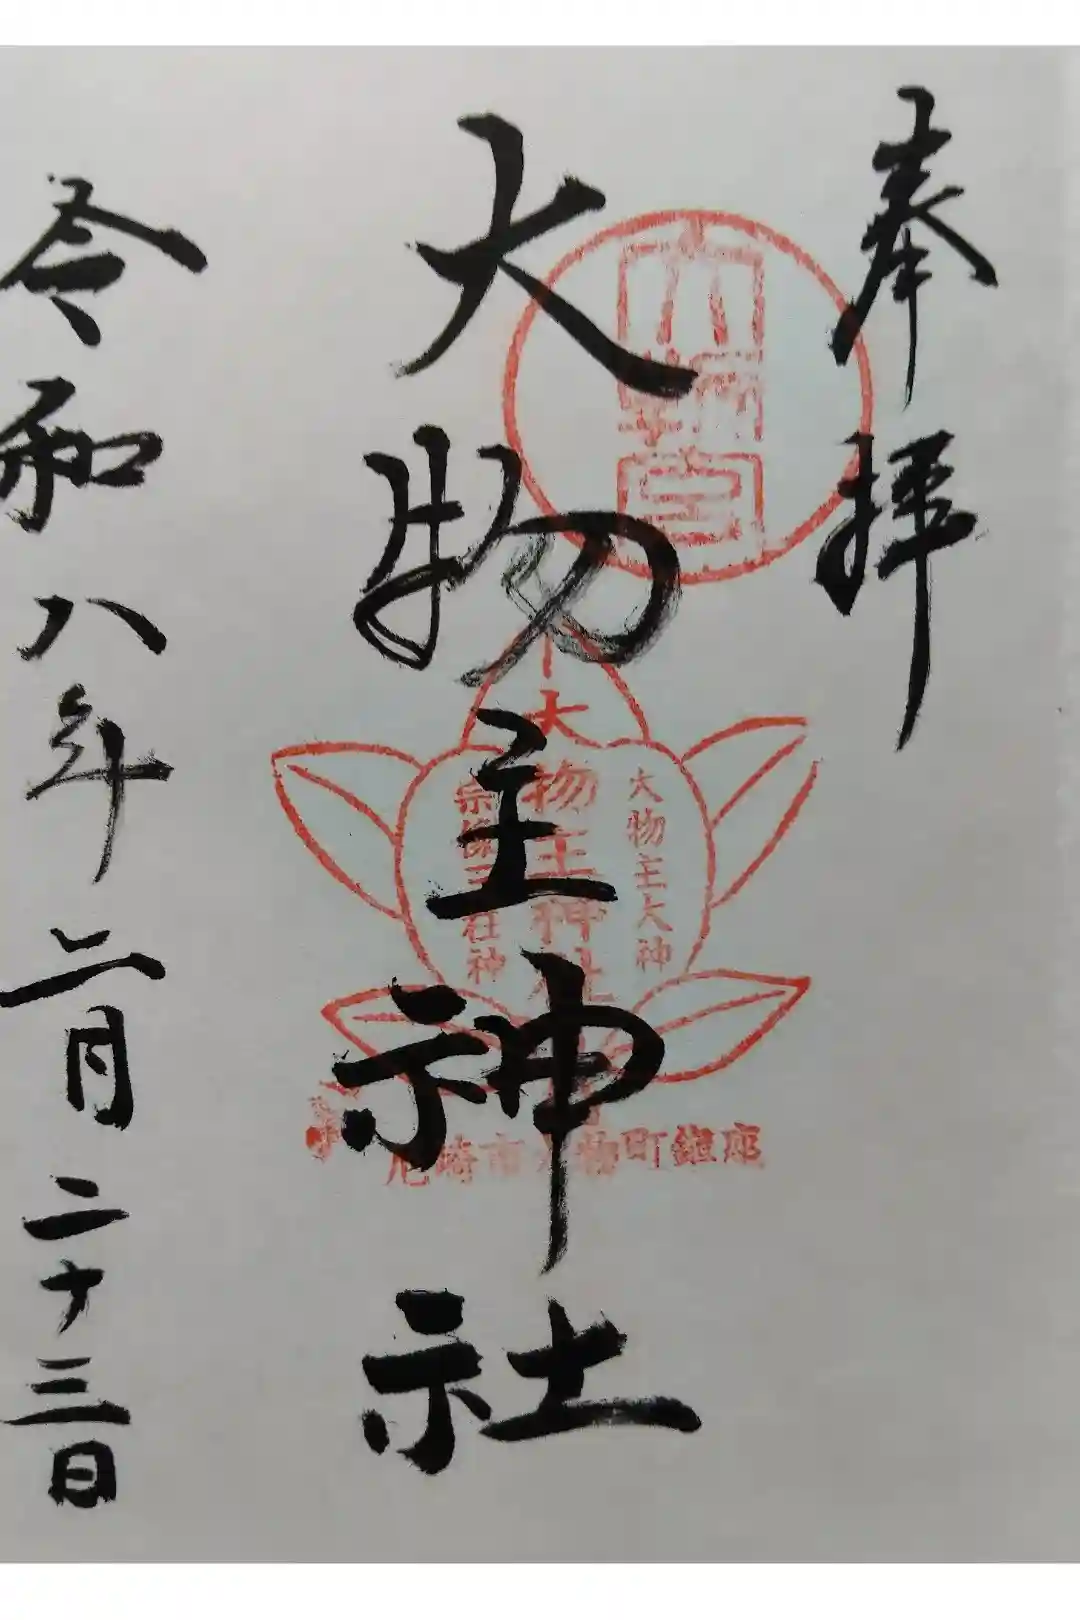 奉拝
大物主神社
大物主大神
大物主神社
尼崎市大物町鎮座
令和八年二月二十三日